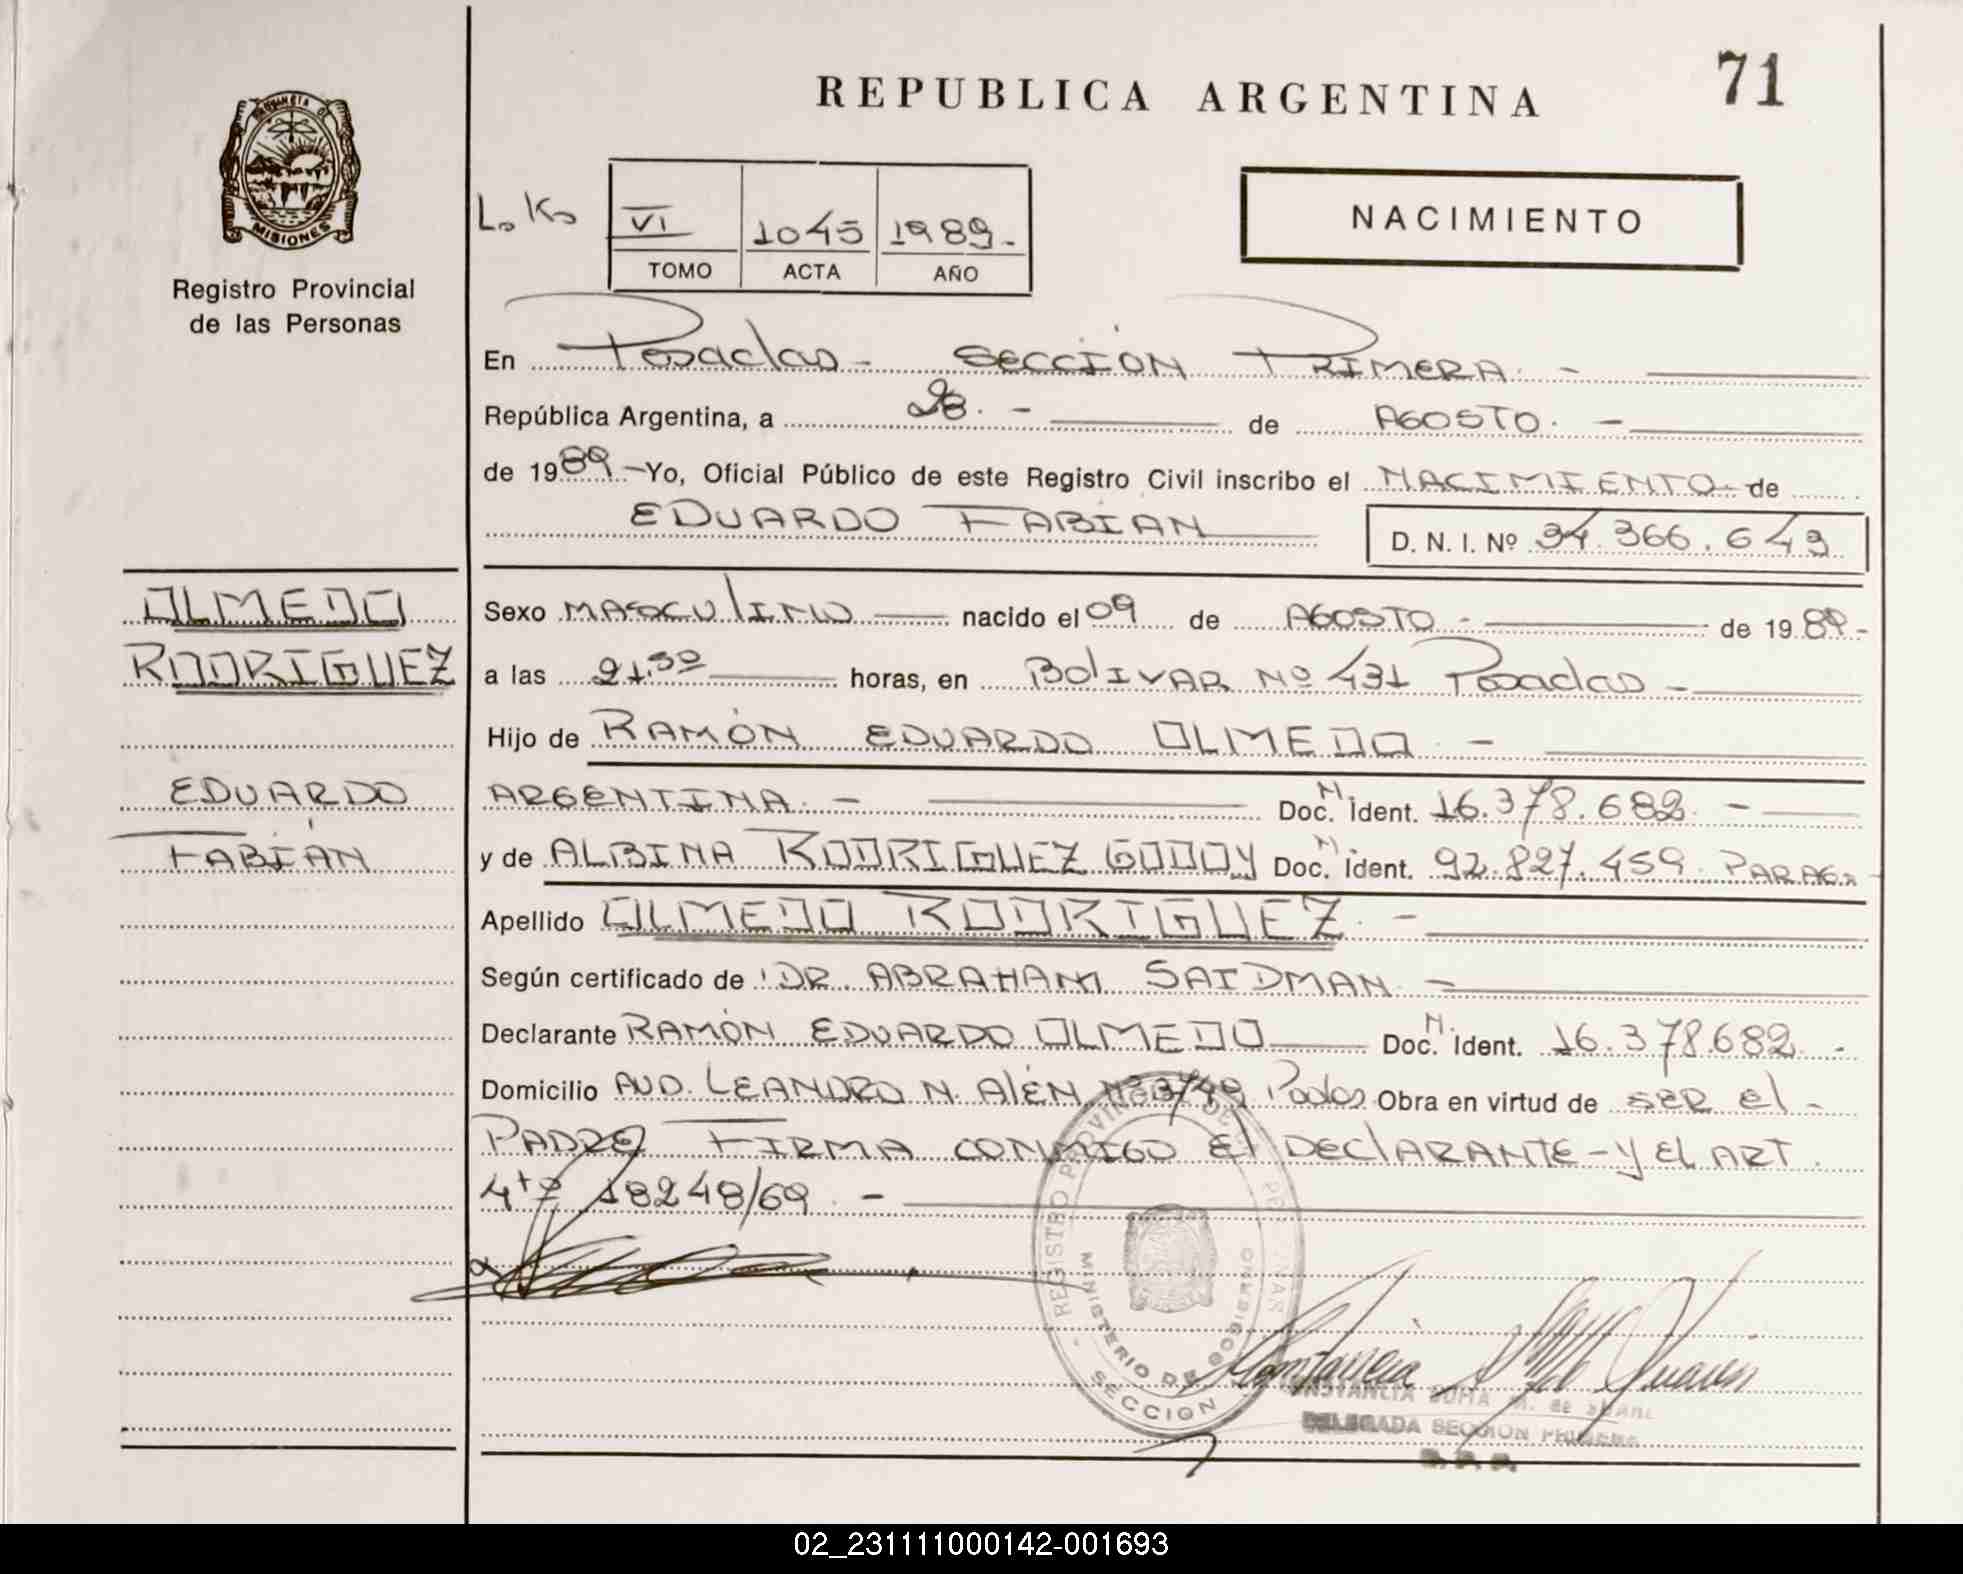 REPUBLICA ARGENTINA
71
MISIONES
Registro Provincial
de las Personas
VI 1045 1989.-
TOMO ACTA AÑO
NACIMIENTO
En Posadas - SECCIÓN PRIMERA. -
República Argentina, a 28. - de AGOSTO. -
de 1989.- Yo, Oficial Público de este Registro Civil inscribo el NACIMIENTO - de
EDUARDO FABIAN D. N. I. Nº 34.366.643
OLMEDO
RODRIGUEZ
EDUARDO
FABIÁN
Sexo MASCULINO nacido el 09 de AGOSTO - de 1989-
a las 21,50 horas, en BOLIVAR Nº 431 Posadas -
Hijo de RAMÓN EDUARDO OLMEDO. -
ARGENTINA. - Doc. N. Ident. 16.378.682. -
y de ALBINA RODRIGUEZ GODOY Doc. N. Ident. 92.827.459. PARAG.
Apellido OLMEDO RODRIGUEZ. -
Según certificado de DR. ABRAHAM SAIDMAN -
Declarante RAMÓN EDUARDO OLMEDO Doc. N. Ident. 16.378.682. -
Domicilio AVD. LEANDRO N. ALÉN Nº 3749 Pdas Obra en virtud de SER El -
PADRE FIRMA CONMIGO El DECLARANTE - Y EL ART.
4to 18248/69. -
REGISTRO PROVINCIAL DE LAS PERSONAS
MINISTERIO DE GOBIERNO
SECCION
CONSTANCIA SOFIA M. de SUAREZ
DELEGADA SECCION PRIMERA
02_231111000142-001693